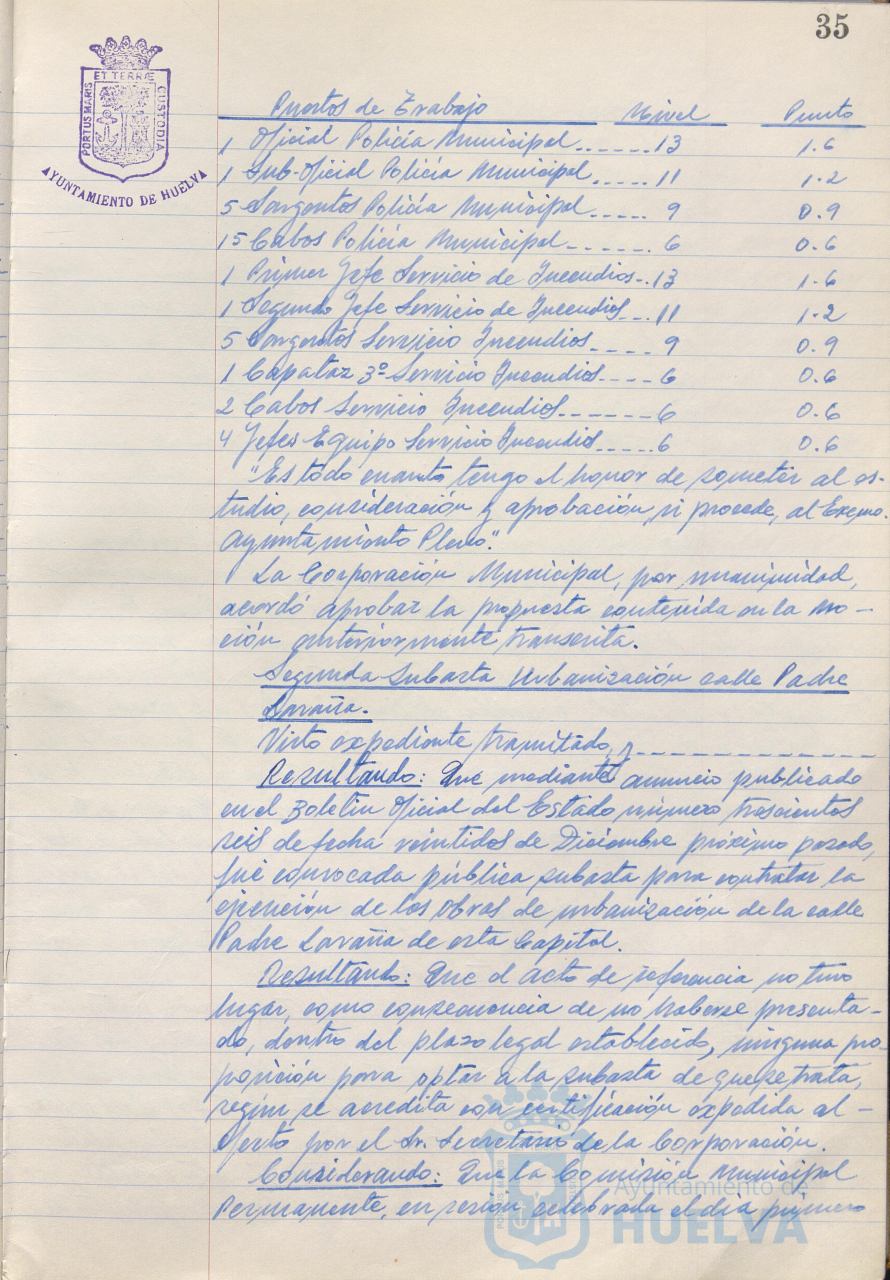 35
ET TERRÆ
PORTUS MARIS
CUSTODIA
AYUNTAMIENTO DE HUELVA
Puestos de Trabajo Nivel Punto
1 Oficial Policía Municipal......13 1.6
1 Sub-Oficial Policía Municipal..... 11 1.2
5 Sargentos Policía Municipal..... 9 0.9
15 Cabos Policía Municipal------ 6 0.6
1 Primer Jefe Servicio de Incendios--13 1.6
1 Segundo Jefe Servicio de Incendios---11 1.2
5 Sargentos Servicio Incendios---- 9 0.9
1 Capataz 3º Servicio Incendios---- 6 0.6
2 Cabos Servicio Incendios------ 6 0.6
4 Jefes Equipo Servicio Incendios.....6 0.6
"Es todo cuanto tengo el honor de someter al es-
tudio, consideración y aprobación, si procede, al Excmo.
Ayuntamiento Pleno".
La Corporación Municipal, por unanimidad,
acordó aprobar la propuesta contenida en la mo-
ción anteriormente transcrita.
Segunda Subasta Urbanización calle Padre
Laraña.
Visto expediente tramitado, y-------------
Resultando: Que mediante anuncio publicado
en el Boletin Oficial del Estado número trescientos
seis de fecha veintidos de Diciembre próximo pasado,
fué convocada pública subasta para contratar la
ejecución de las obras de urbanización de la calle
Padre Laraña de esta Capital.
Resultando: Que el acto de referencia no tuvo
lugar, como consecuencia de no haberse presenta-
do, dentro del plazo legal establecido, ninguna pro-
posición para optar a la subasta de que se trata,
según se acredita con certificación expedida al
efecto por el Sr. Secretario de la Corporación.
Considerando: Que la Comisión Municipal
Permanente, en sesión celebrada el día primero
Ayuntamiento de
HUELVA